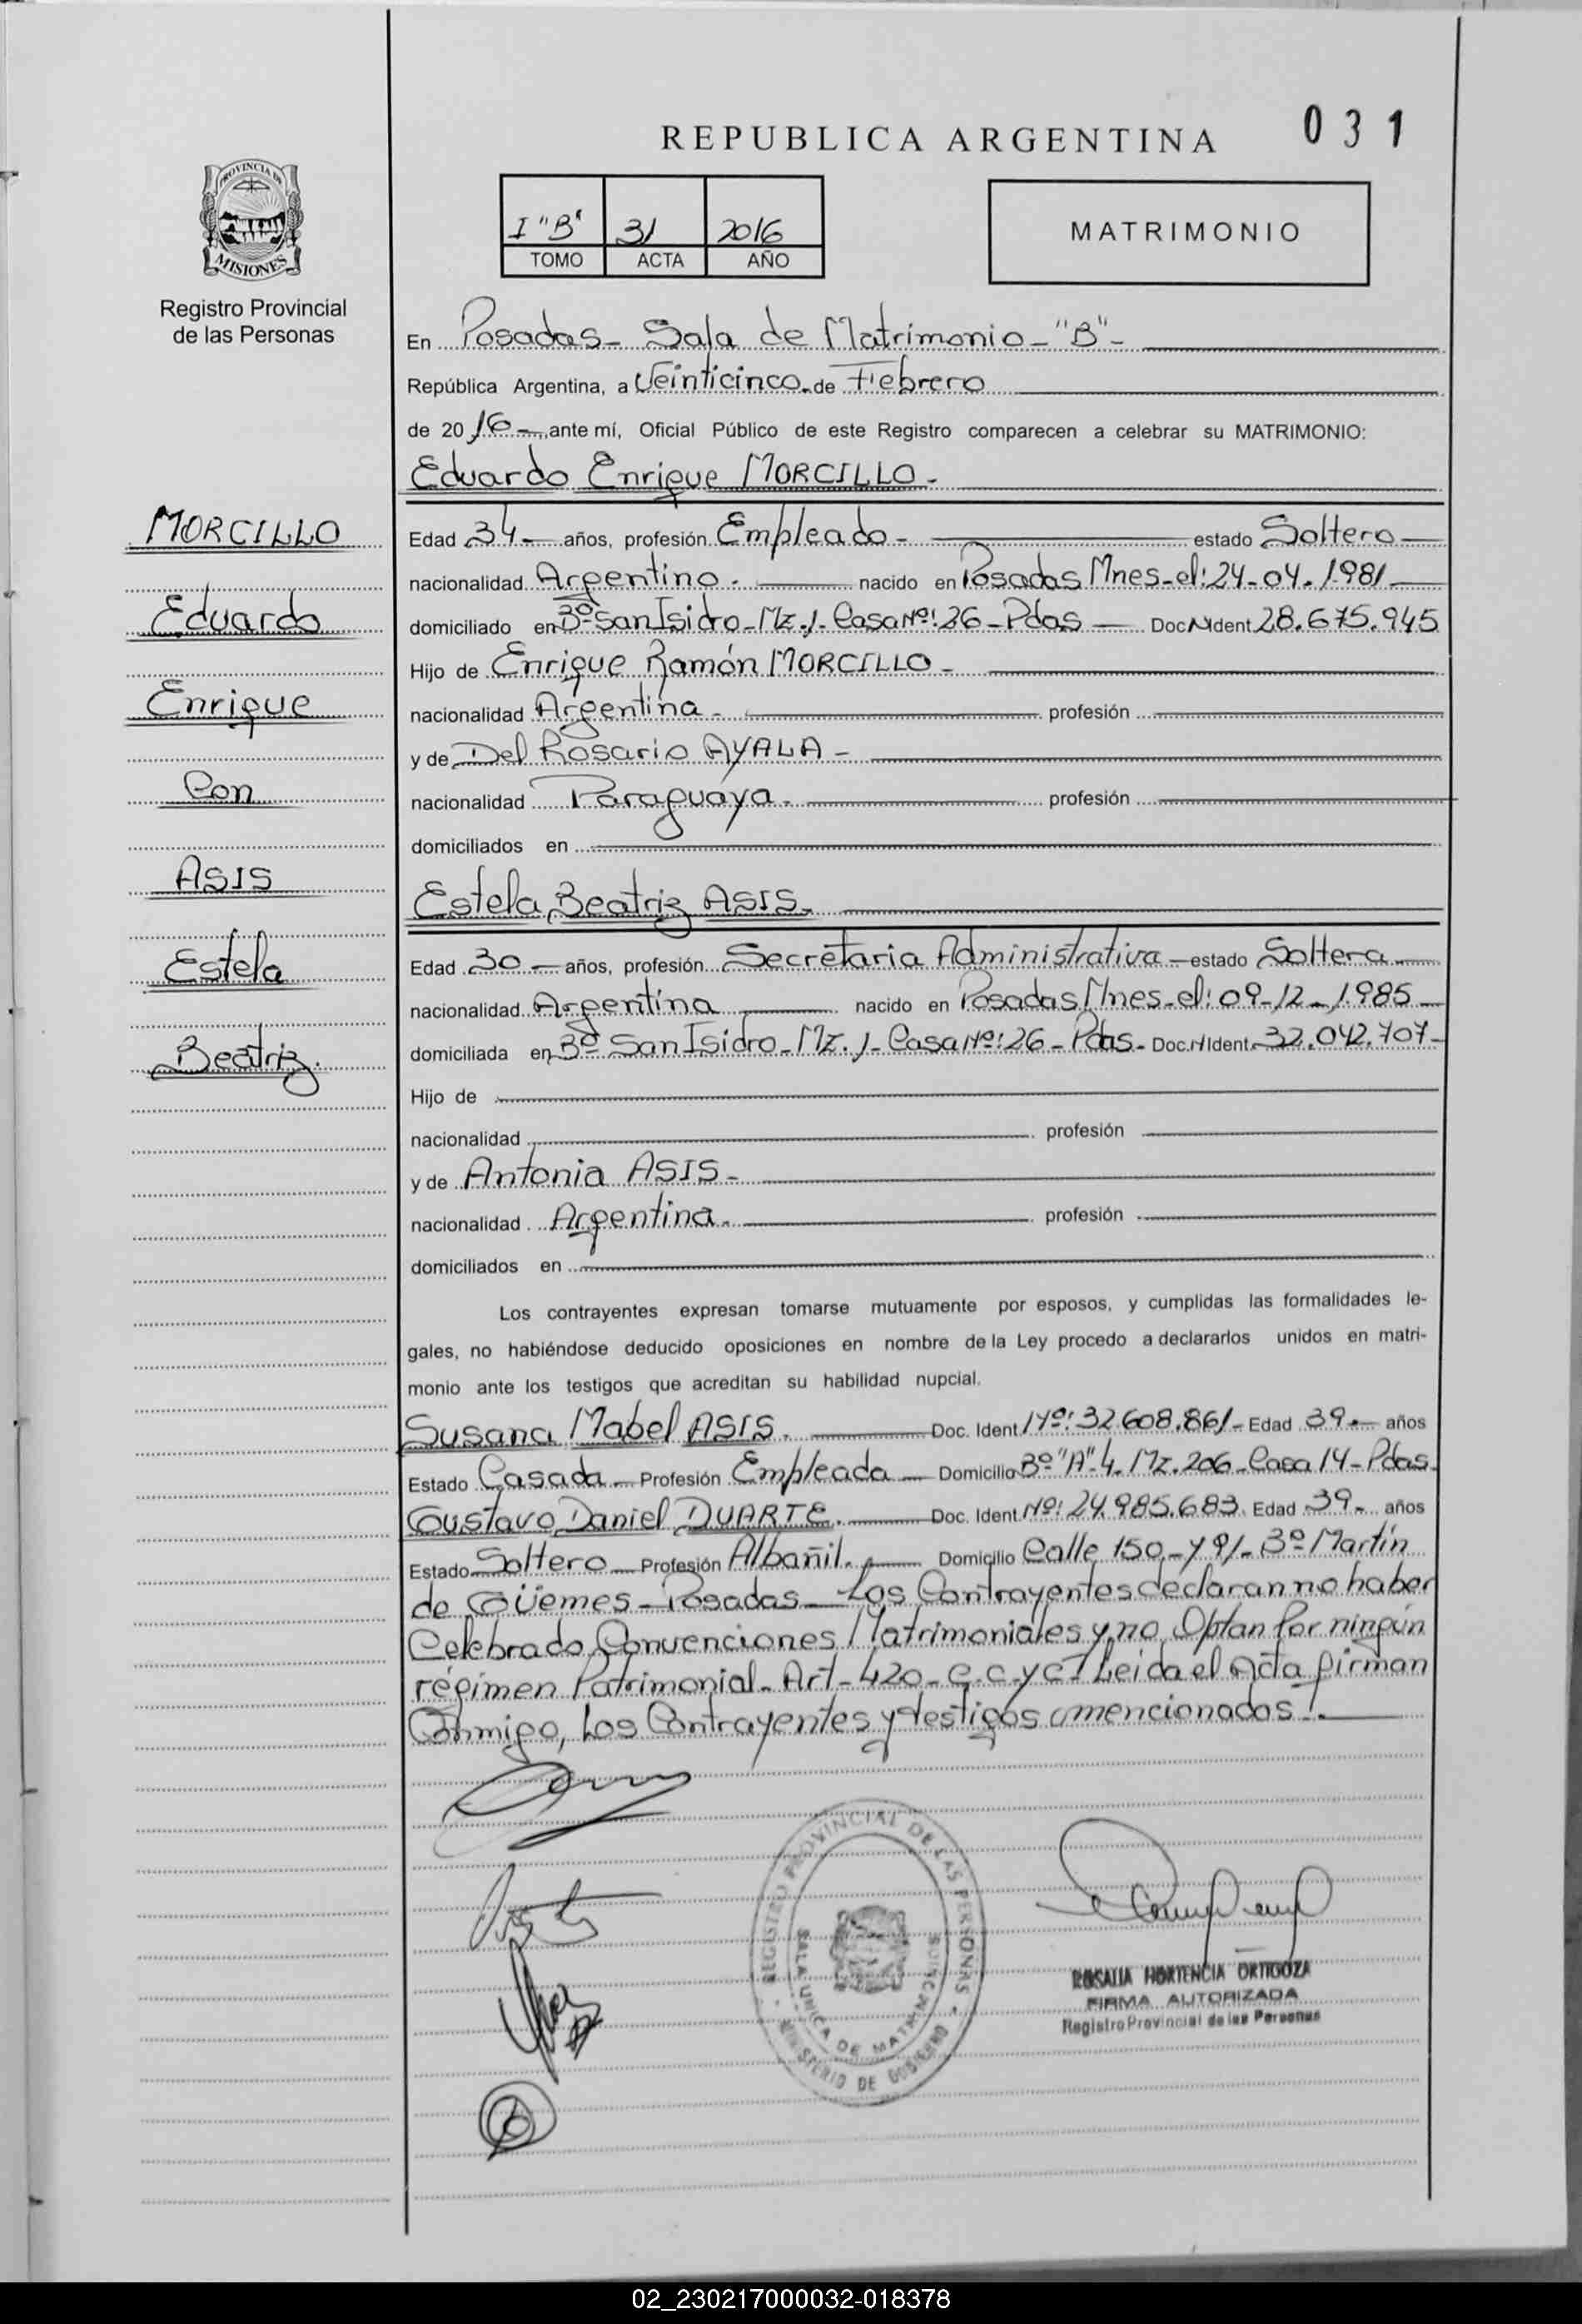 REPUBLICA ARGENTINA
031
PROVINCIA DE
MISIONES
Registro Provincial
de las Personas
I "B" 31 2016
TOMO ACTA AÑO
MATRIMONIO
En Posadas- Sala de Matrimonio-"B"-
República Argentina, a Veinticinco.de Febrero
de 2016-,ante mí, Oficial Público de este Registro comparecen a celebrar su MATRIMONIO:
Eduardo Enrique MORCILLO.-
MORCILLO
Eduardo
Enrique
Con
ASIS
Estela
Beatriz.
Edad 34- años, profesión Empleado- estado Soltero-
nacionalidad Argentino.- nacido en Posadas Mnes-el:24-04-1981-
domiciliado en Bº San Isidro-Mz.J-Casa Nº:26-Pdas- Doc.N.Ident 28.675.945
Hijo de Enrique Ramón MORCILLO-
nacionalidad Argentina- profesión
y de Del Rosario AYALA-
nacionalidad Paraguaya.- profesión
domiciliados en
Estela Beatriz ASIS.-
Edad 30- años, profesión Secretaria Administrativa-estado Soltera-
nacionalidad Argentina nacido en Posadas Mnes-el:09-12-1985-
domiciliada en Bº San Isidro-Mz.J-Casa Nº:26-Pdas-Doc.N.Ident.32.042.707-
Hijo de
nacionalidad profesión
y de Antonia ASIS-
nacionalidad Argentina.- profesión
domiciliados en
Los contrayentes expresan tomarse mutuamente por esposos, y cumplidas las formalidades le-
gales, no habiéndose deducido oposiciones en nombre de la Ley procedo a declararlos unidos en matri-
monio ante los testigos que acreditan su habilidad nupcial.
Susana Mabel ASIS.- Doc. Ident Nº:32.608.861-Edad 39.- años
Estado Casada-Profesión Empleada- Domicilio Bº"A"-4-Mz.206-Casa 14-Pdas-
Gustavo Daniel DUARTE.- Doc. Ident Nº:24.985.683. Edad 39.- años
Estado Soltero-Profesión Albañil.- Domicilio Calle 150-y 91-Bº Martín
de Güemes-Posadas-Los Contrayentes declaran no haber
Celebrado Convenciones Matrimoniales y no Optan Por ningún
régimen Patrimonial-Art-420-C.C.yC-Leida el Acta firman
Conmigo, Los Contrayentes y testigos mencionados!.-
REGISTRO PROVINCIAL DE LAS PERSONAS
MINISTERIO DE GOBIERNO
SALA UNICA DE MATRIMONIOS
ROSALIA HORTENCIA ORTIGOZA
FIRMA AUTORIZADA
Registro Provincial de las Personas
02_230217000032-018378